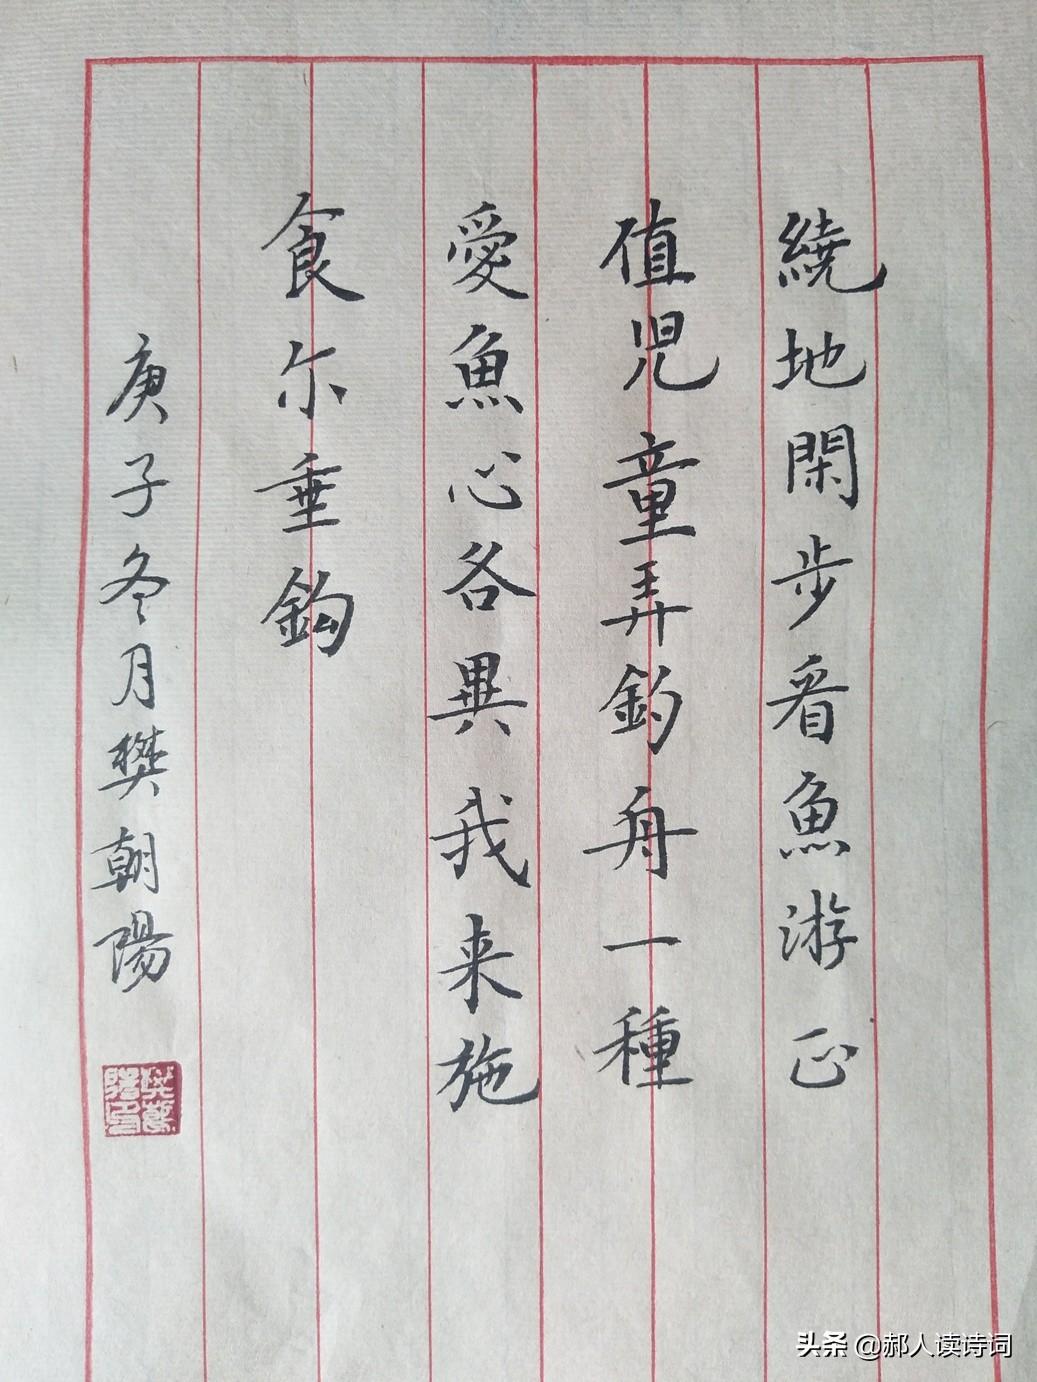 繞地閑步看魚游正
值兒童弄釣舟一種
愛魚心各異我来施
食尔垂鈎
庚子冬月樊朝陽
头条 @郝人读诗词